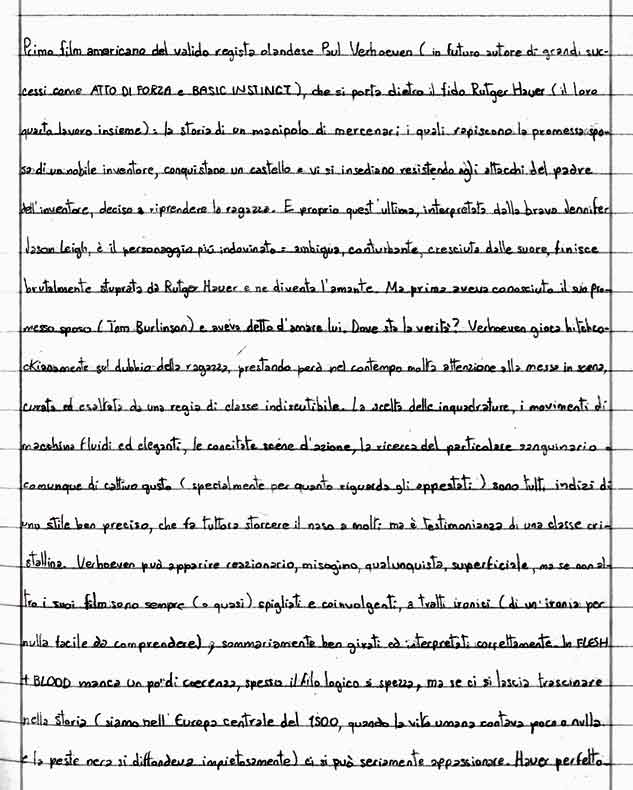 Primo film americano del valido regista olandese Paul Verhoeven (in futuro autore di grandi suc-
cessi come ATTO DI FORZA e BASIC INSTINCT), che si porta dietro il fido Rutger Hauer (il loro
quarto lavoro insieme): la storia di un manipolo di mercenari i quali rapiscono la promessa spo-
sa di un nobile inventore, conquistano un castello e vi si insediano resistendo agli attacchi del padre
dell'inventore, deciso a riprendere la ragazza. E proprio quest'ultima, interpretata dalla brava Jennifer
Jason Leigh, è il personaggio più indovinato: ambigua, conturbante, cresciuta dalle suore, finisce
brutalmente stuprata da Rutger Hauer e ne diventa l'amante. Ma prima aveva conosciuto il suo pro-
messo sposo (Tom Burlinson) e aveva detto d'amare lui. Dove sta la verità? Verhoeven gioca hitchco-
ckianamente sul dubbio della ragazza, prestando però nel contempo molta attenzione alla messa in scena,
curata ed esaltata da una regia di classe indiscutibile. La scelta delle inquadrature, i movimenti di
macchina fluidi ed eleganti, le concitate scene d'azione, la ricerca del particolare sanguinario o
comunque di cattivo gusto (specialmente per quanto riguarda gli appestati) sono tutti indizi di
uno stile ben preciso, che fa tuttora storcere il naso a molti ma è testimonianza di una classe cri-
stallina. Verhoeven può apparire reazionario, misogino, qualunquista, superficiale, ma se non al-
tro i suoi film sono sempre (o quasi) spigliati e coinvolgenti, a tratti ironici (di un'ironia per
nulla facile da comprendere), sommariamente ben girati ed interpretati correttamente. In FLESH
+ BLOOD manca un po' di coerenza, spesso il filo logico si spezza, ma se ci si lascia trascinare
nella storia (siamo nell'Europa centrale del 1500, quando la vita umana contava poco o nulla
e la peste nera si diffondeva impietosamente) ci si può seriamente appassionare. Hauer perfetto